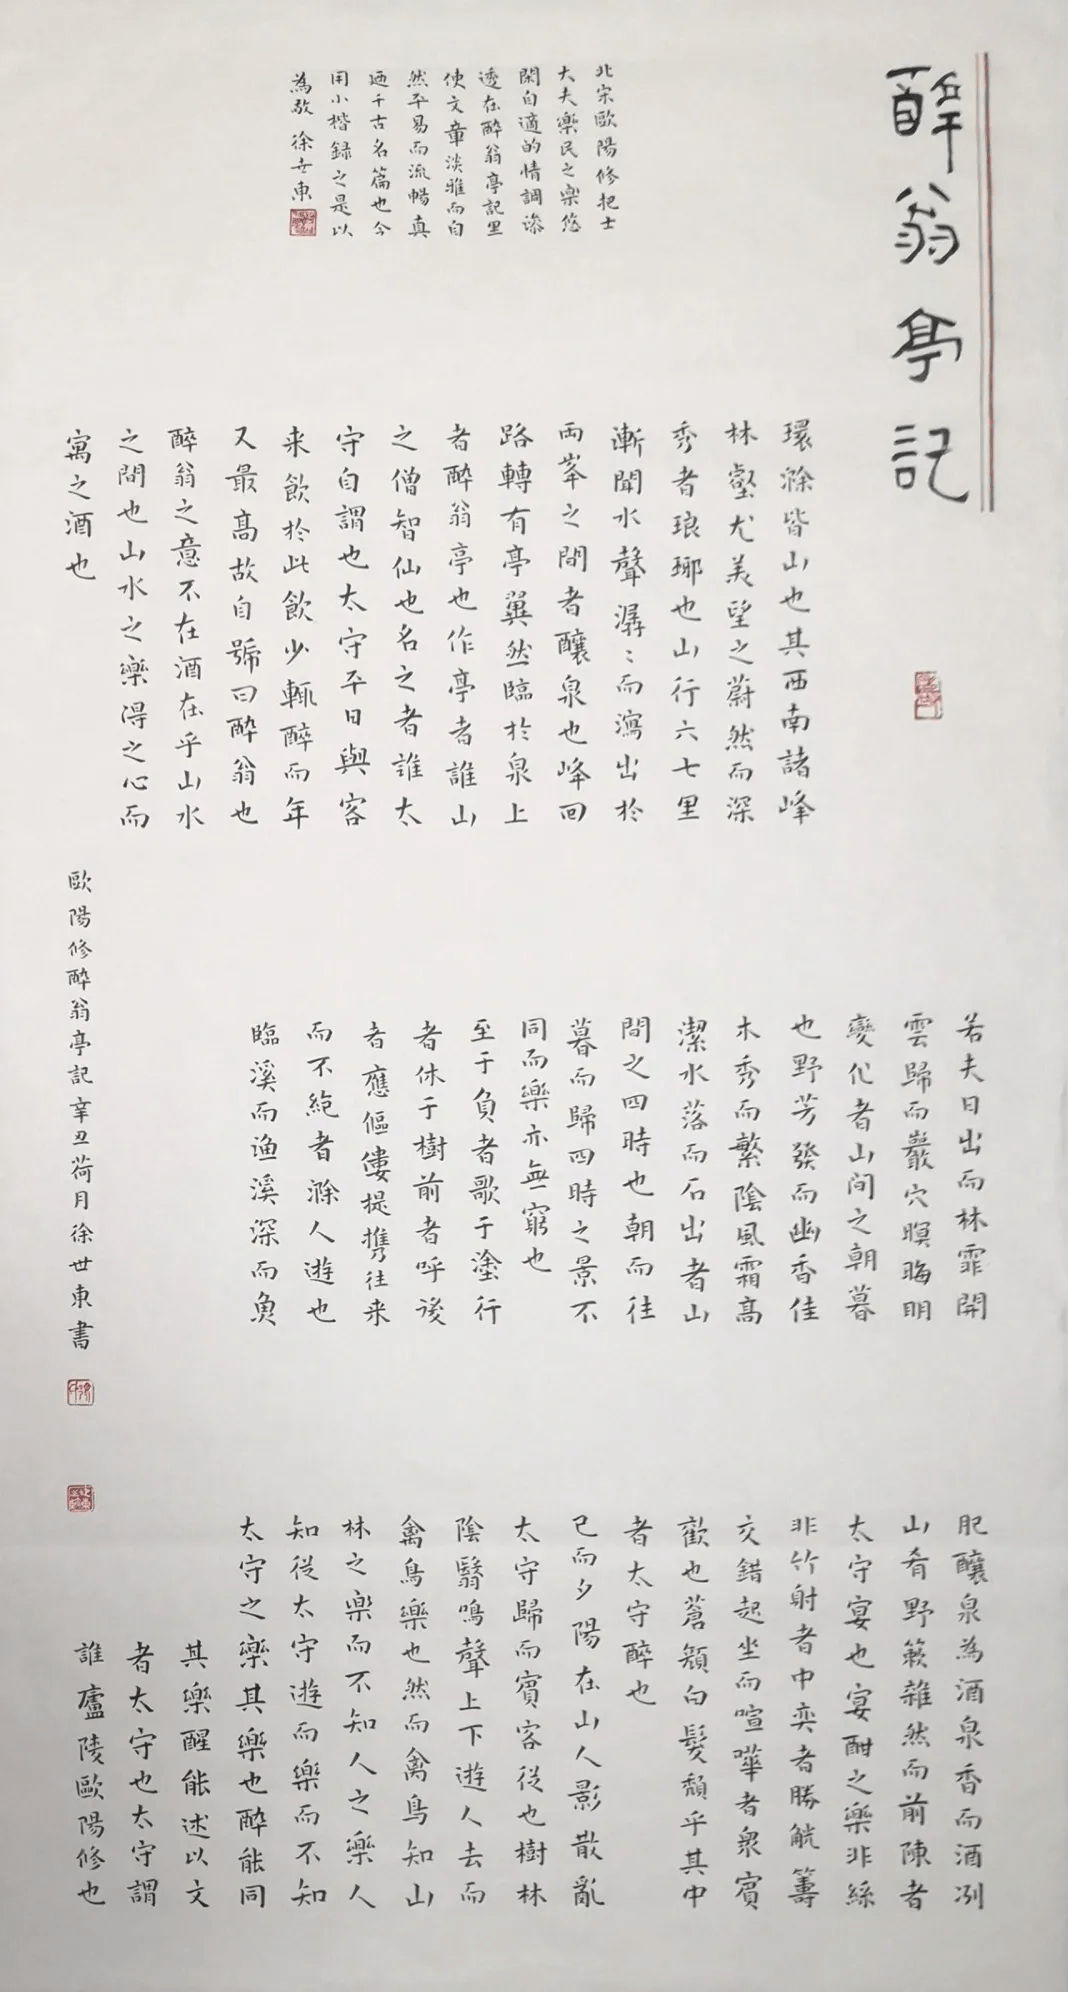 醉翁亭記
北宋歐陽修把士
大夫樂民之樂悠
閑自適的情調滲
透在醉翁亭記里
使文章淡雅而自
然平易而流暢真
迺千古名篇也今
用小楷録之是以
為敬 徐世東
環滁皆山也其西南諸峰
林壑尤美望之蔚然而深
秀者琅琊也山行六七里
漸聞水聲潺〻而瀉出於
兩峯之間者釀泉也峰回
路轉有亭翼然臨於泉上
者醉翁亭也作亭者誰山
之僧智仙也名之者誰太
守自謂也太守平日與客
来飲於此飲少輒醉而年
又最高故自號曰醉翁也
醉翁之意不在酒在乎山水
之間也山水之樂得之心而
寓之酒也
若夫日出而林霏開
雲歸而巖穴暝晦明
變化者山间之朝暮
也野芳發而幽香佳
木秀而繁陰風霜高
潔水落而石出者山
間之四時也朝而往
暮而歸四時之景不
同而樂亦無窮也
至于負者歌于塗行
者休于樹前者呼後
者應傴僂提攜往来
而不絶者滁人遊也
臨溪而渔溪深而魚
肥釀泉為酒泉香而酒冽
山肴野蔌雜然而前陳者
太守宴也宴酣之樂非絲
非竹射者中奕者勝觥籌
交錯起坐而喧嘩者衆賓
歡也蒼顏白髮頹乎其中
者太守醉也
已而夕陽在山人影散亂
太守歸而賓客從也樹林
陰翳鳴聲上下遊人去而
禽鳥樂也然而禽鳥知山
林之樂而不知人之樂人
知從太守遊而樂而不知
太守之樂其樂也醉能同
其樂醒能述以文
者太守也太守謂
誰廬陵歐陽修也
歐陽修醉翁亭記辛丑荷月徐世東書